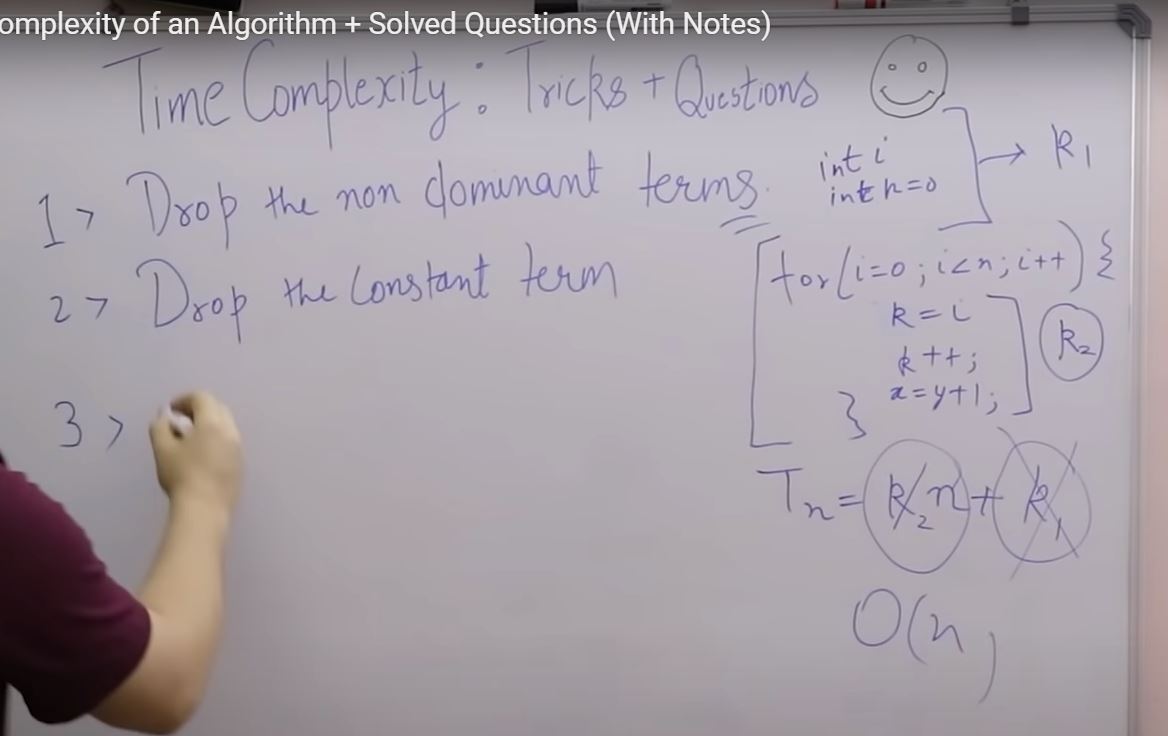 omplexity of an Algorithm + Solved Questions (With Notes)
Time Complexity: Tricks + Questions
1> Drop the non dominant terms.
2> Drop the Constant term
3>
int i
int n=0
→ k1
for(i=0; i<n; i++) {
k = i
k++;
x=y+1;
}
k2
Tn = k2n + k1
O(n)